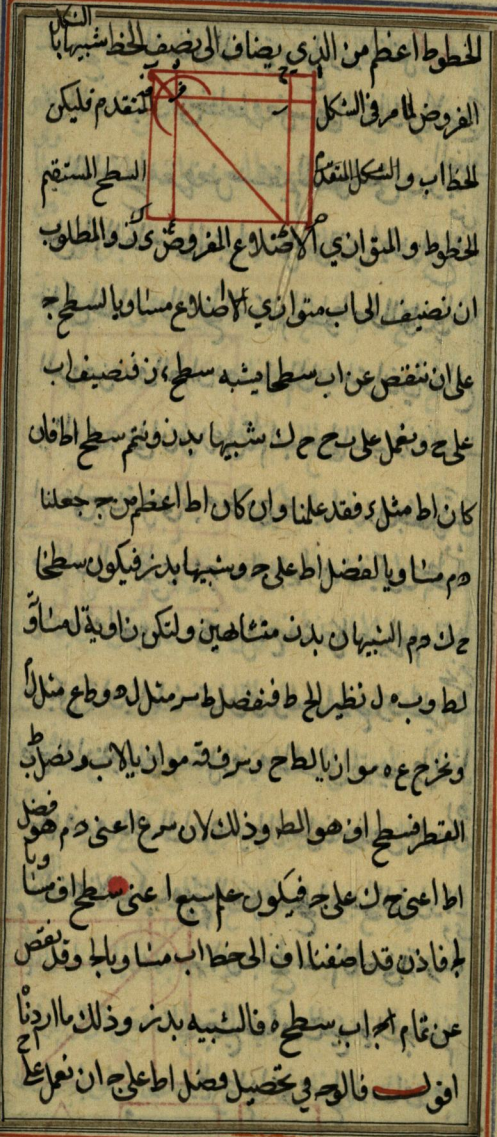 الخطوط اعظم من الذي يضاف الى نصف الخط شبيها بالشكل
المفروض لما مر في الشكل المتقدم فليكن
الخط اب والشكل المتقدم السطح المستقيم
الخطوط والمتوازي الاضلاع المفروض ء ز والمطلوب
ان نضيف الى اب متوازي الاضلاع مساويا لسطح ج
على ان ينقص عن اب سطحا يشبه سطح ء ز فنصيف اب
على ح ونعمل على ب ح ح ك شبيها بدز ونتم سطح اط فان
كان اط مثل ء فقد علمنا وان كان اط اعظم من ج جعلنا
ه م مساويا لفضل اط على ج وشبيها بدز فيكون سطحا
ح ك ه م الشبيهان بدز متشابهين ولتكن زاوية ل مساوية
لط و ه ل نظير لح ط فنفصل ط س مثل ل ه و ط ع مثل ل م
ونخرج ع ه موازيا لطح و س ف ق موازيا لاب ونصل ط ب
القطر فسطح اف هو المط وذلك لان س ع اعنى ه م هو فضل
اط اعنى ح ك على ج فيكون علم س ع ا عنى سطح اف مساويا
لج فاذن قد اضفنا اف الى خط اب مساويا لج وقد نقص
عن تمام اب سطح ه ف الشبيه بدز وذلك ما اردنا
اقول فالوجه في تحصيل فضل اط على ج ان نعمل على ح